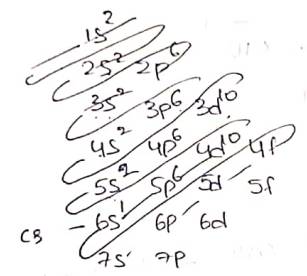 1s²
2s² 2p⁶
3s² 3p⁶ 3d¹⁰
4s² 4p⁶ 4d¹⁰ 4f
5s² 5p⁶ 5d 5f
Cs - 6s¹ 6p 6d
7s 7p